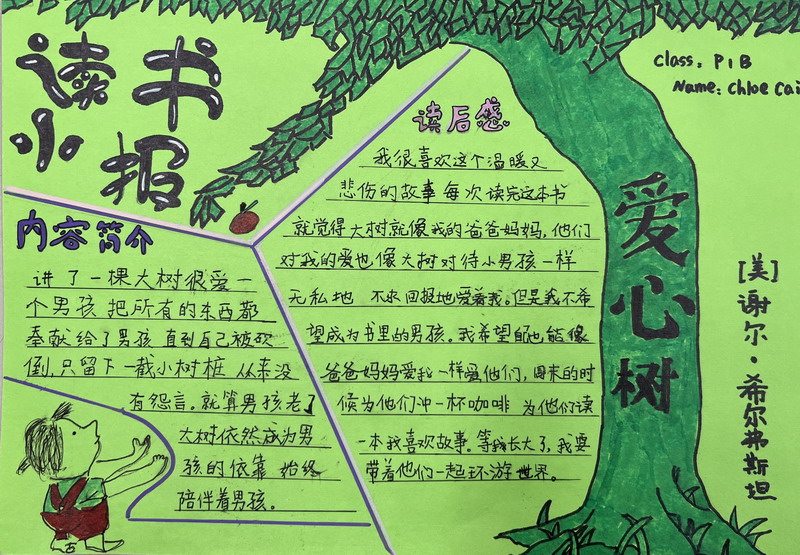 读书
小报
Class: P1B
Name: Chloe Cai
内容简介
讲了一棵大树很爱一
个男孩 把所有的东西都
奉献给了男孩 直到自己被砍
倒,只留下一截小树桩 从来没
有怨言。就算男孩老了
大树依然成为男
孩的依靠 始终
陪伴着男孩。
读后感
我很喜欢这个温暖又
悲伤的故事 每次读完这本书
就觉得大树就像我的爸爸妈妈,他们
对我的爱也像大树对待小男孩一样
无私地 不求回报地爱着我。但是我不希
望成为书里的男孩。我希望自己也能像
爸爸妈妈爱我一样爱他们,周末的时
候为他们冲一杯咖啡 为他们读
一本我喜欢故事。等我长大了,我要
带着他们一起环游世界。
爱心树
[美]谢尔·希尔弗斯坦